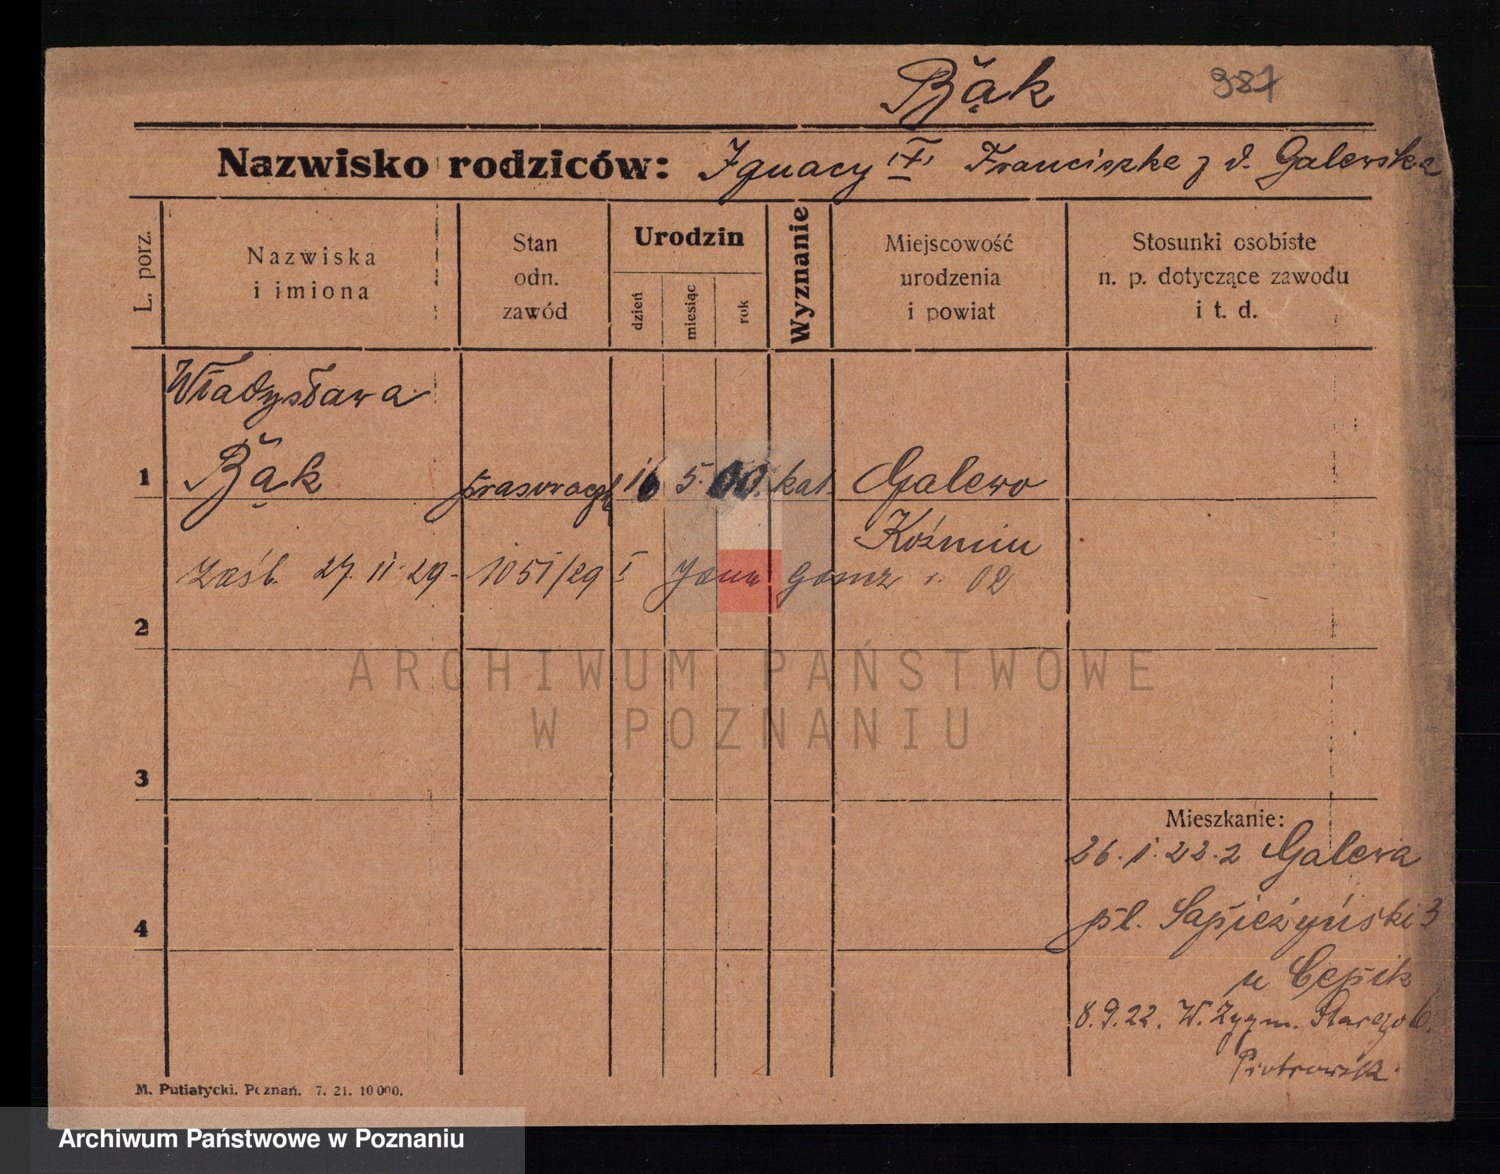 Bąk 987
Nazwisko rodziców: Ignacy Franciszka z d. Galewska
L. porz.
Nazwiska
i imiona
Stan
odn.
zawód
Urodzin
dzień
miesiąc
rok
Wyznanie
Miejscowość
urodzenia
i powiat
Stosunki osobiste
n. p. dotyczące zawodu
i t. d.
Władysława
1 Bąk prasowaczk 16 5. 00. kat. Galewo
Koźmin
zaśl. 27. 11. 29. 1051/29 I Jana 02
2
3
4
Mieszkanie:
26. 1. 22. z Galewa
pl. Sapieżyński 3
u Cepik
8. 9. 22. W. Zygm. Starego 6.
M. Putiatycki. Poznań. 7. 21. 10 000.
ARCHIWUM PAŃSTWOWE
W POZNANIU
Archiwum Państwowe w Poznaniu